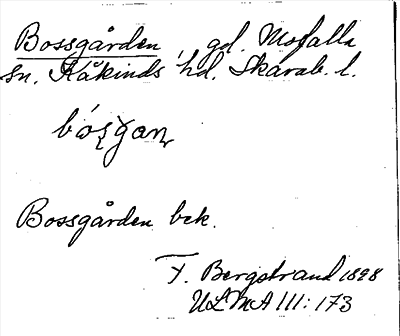 Bossgården, gd. Mofalla
sn. Kåkinds hd. Skarab. l.
Bossgården bek.
F. Bergstrand 1898
ULMA 111: 173